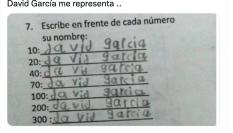 David García me representa ..
7. Escribe en frente de cada número
su nombre:
10: david garcia
20: david garcia
40: david garcia
70: david garcia
100: david garcia
200: david garcia
300: david garcia